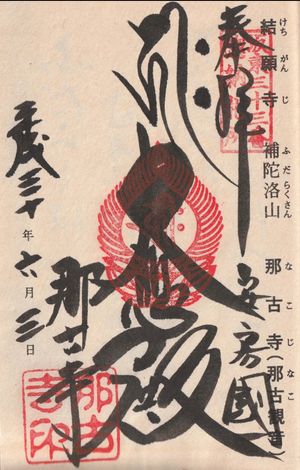 結願寺 補陀洛山 那古寺(那古観音)
けち がん じ ふ だ らくさん な こ じ な こ
奉拝
安房國
大悲殿
那古寺
平成三十年六月三日
那古寺印